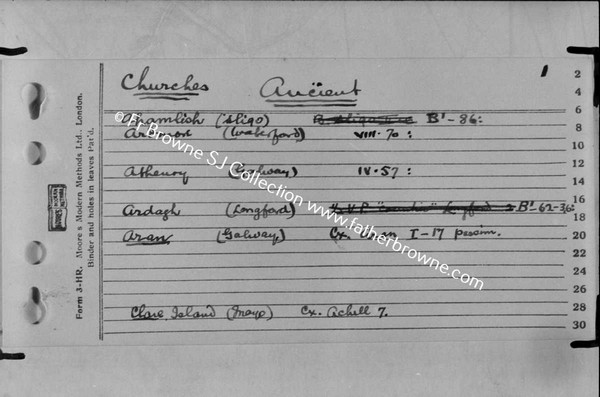 Churches Ancient 1
Ahamlish (Sligo) B¹-86:
Ardmore (Waterford) VIII.70:
Athenry (Galway) IV.57:
Ardagh (Longford) B¹-62-36:
Aran (Galway) Cx. Aran I-17 passim.
Clare Island (Mayo) Cx. Achill 7.
2
4
6
8
10
12
14
16
18
20
22
24
26
28
30
Form 3-HR. Moore's Modern Methods Ltd., London.
Binder and holes in leaves Pat'd.
©Fr Browne SJ Collection www.fatherbrowne.com